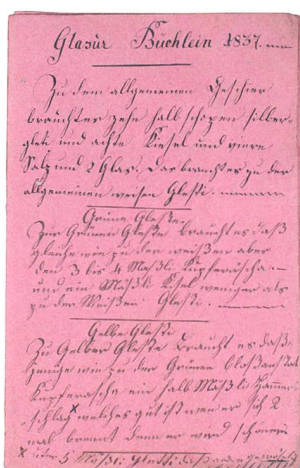 Glasur Büchlein 1837.
Zu dem allgemeinen Geschier
braucht er zehn halb schopen silber
glett und achte Kiesel und viere
Salz und 2 Glas. Das braucht es zu der
allgemeinen weisen Glesti.
Grüne Glesti
Zur Grünen Glesti braucht es daß
gleiche wie zu der weißen aber
den 3 bis 4 Mäßli Kupferäscha.
und ein Mäßli Kisel weniger als
zu der Weißen Glesti.
Gelbe Glesti
Zu Gelber Glesti braucht es daß
wie zu der Grünen bloß anstat
Kupferasche ein halb Mäßli Hammer
schlag welches gut ist wen er sich 2
mal brennt den er wird schöner
5 Mäßli Glesti daß